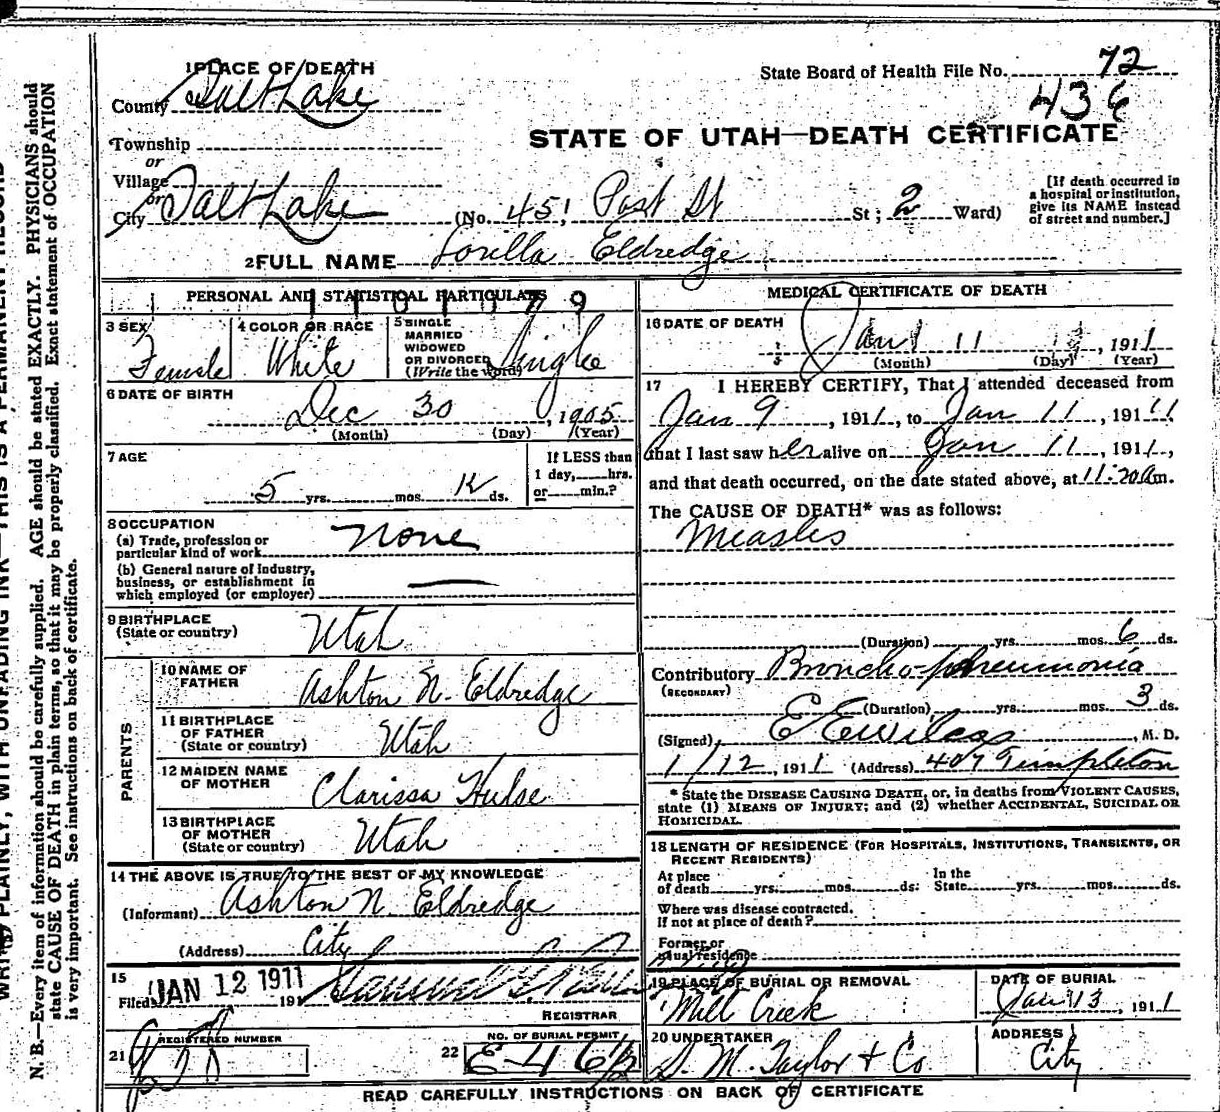 1 PLACE OF DEATH
County Salt Lake
Township
or
Village
or
City Salt Lake (No. 451 Post St St; 2 Ward)
State Board of Health File No. 72
436
STATE OF UTAH—DEATH CERTIFICATE
[If death occurred in
a hospital or institution,
give its NAME instead
of street and number.]
2 FULL NAME Lorilla Eldredge
PERSONAL AND STATISTICAL PARTICULARS
3 SEX Female
4 COLOR OR RACE White
5 SINGLE
MARRIED
WIDOWED
OR DIVORCED
(Write the word) Single
6 DATE OF BIRTH
Dec 30, 1905
(Month) (Day) (Year)
7 AGE
5 yrs. mos. 12 ds.
If LESS than
1 day, hrs.
or min.?
8 OCCUPATION
(a) Trade, profession or
particular kind of work None
(b) General nature of industry,
business, or establishment in
which employed (or employer)
9 BIRTHPLACE
(State or country) Utah
PARENTS
10 NAME OF
FATHER Ashton N. Eldredge
11 BIRTHPLACE
OF FATHER
(State or country) Utah
12 MAIDEN NAME
OF MOTHER Clarissa Hulse
13 BIRTHPLACE
OF MOTHER
(State or country) Utah
14 THE ABOVE IS TRUE TO THE BEST OF MY KNOWLEDGE
(Informant) Ashton N. Eldredge
(Address) City
15
Filed JAN 12 1911 191
REGISTRAR
REGISTERED NUMBER
21
NO. OF BURIAL PERMIT
22 E-46½
MEDICAL CERTIFICATE OF DEATH
16 DATE OF DEATH
Jan 11, 1911
(Month) (Day) (Year)
17 I HEREBY CERTIFY, That I attended deceased from
Jan 9, 1911, to Jan 11, 1911
that I last saw her alive on Jan 11, 1911,
and that death occurred, on the date stated above, at 11:20 a m.
The CAUSE OF DEATH* was as follows:
Measles
(Duration) yrs. mos. 6 ds.
Contributory Broncho-pneumonia
(SECONDARY)
(Duration) yrs. mos. 3 ds.
(Signed) E E Wilcox, M. D.
1/12, 1911 (Address) 407 Templeton
* State the DISEASE CAUSING DEATH, or, in deaths from VIOLENT CAUSES,
state (1) MEANS OF INJURY; and (2) whether ACCIDENTAL, SUICIDAL OR
HOMICIDAL.
18 LENGTH OF RESIDENCE (FOR HOSPITALS, INSTITUTIONS, TRANSIENTS, OR
RECENT RESIDENTS)
At place
of death yrs. mos. ds. In the
State yrs. mos. ds.
Where was disease contracted.
If not at place of death?
Former or
usual residence
19 PLACE OF BURIAL OR REMOVAL
Mill Creek
DATE OF BURIAL
Jan 13, 1911
20 UNDERTAKER
S. M. Taylor & Co.
ADDRESS
City
READ CAREFULLY INSTRUCTIONS ON BACK OF CERTIFICATE
WRITE PLAINLY, WITH UNFADING INK—THIS IS A PERMANENT RECORD
N. B.—Every item of information should be carefully supplied. AGE should be stated EXACTLY. PHYSICIANS should
state CAUSE OF DEATH in plain terms, so that it may be properly classified. Exact statement of OCCUPATION
is very important. See instructions on back of certificate.